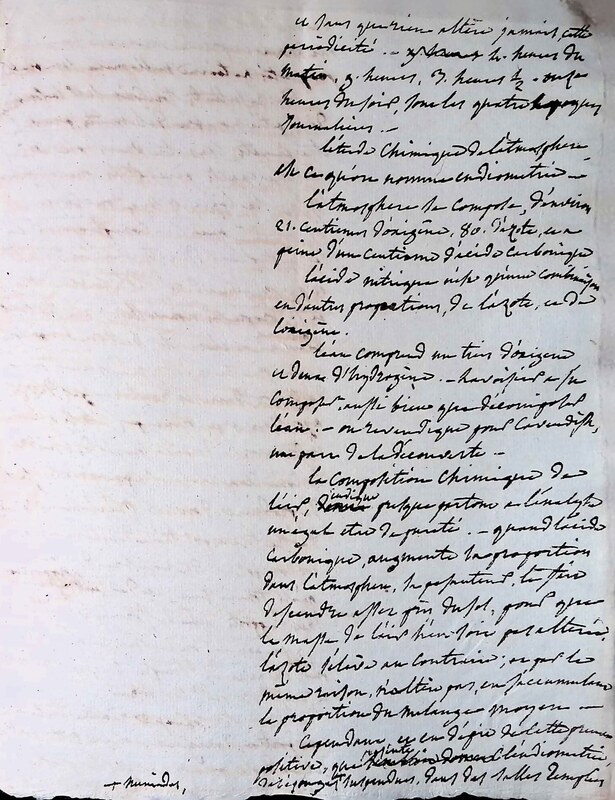 et sans que rien altère jamais cette
périodicité. — 4. heures du
matin, 9. heures, 3. heures ½ onze
heures du soir, sont les quatre époques
journalières. —
l'étude chimique de l'atmosphère
est ce qu'on nomme eudiométrie —
l'atmosphère se compose, d'environ
21. centièmes d'oxigène, 80. d'azote, et a
peine d'un centième d'acide carbonique
l'acide nitrique n'est qu'une combinaison
en d'autres proportions, de l'azote, et de
l'oxigène.
l'eau comprend un tiers d'oxigène
et deux d'hydrogène. — Lavoisier a su
composer, aussi bien que décomposer
l'eau. — on revendique pour Cavendish,
une part de la découverte —
la composition chimique de
l'air, indique presque partout a l'analyse
un égal état de pureté. — quand l'acide
carbonique, augmente sa proportion
dans l'atmosphère, sa pesanteur, le fait
descendre assez près du sol, pour que
la masse de l'air n'en soit pas altérée.
l'azote s'élève au contraire, et par la
même raison, n'altère pas, en s'accumulant
la proportion du mélange moyen —
Cependant, et en dépit de cette preuve
positive, que l'eudiométrie,
suspendus, dans des salles remplies